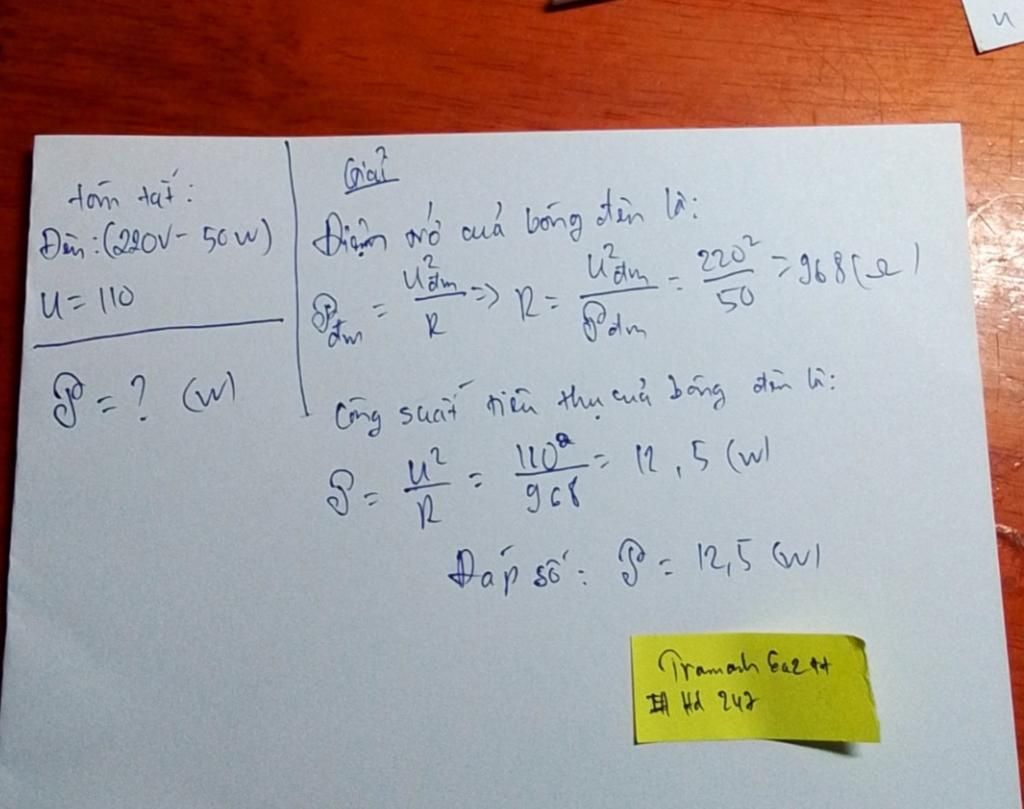 tóm tắt:
Đèn: (220V - 50W)
U = 110
P = ? (W)
Giải
Điện trở của bóng đèn là:
Pđm = U²đm/R => R = U²đm/Pđm = 220²/50 = 968 (Ω)
Công suất tiêu thụ của bóng đèn là:
P = U²/R = 110²/968 = 12,5 (W)
Đáp số: P = 12,5 (W)
Hd 247
u